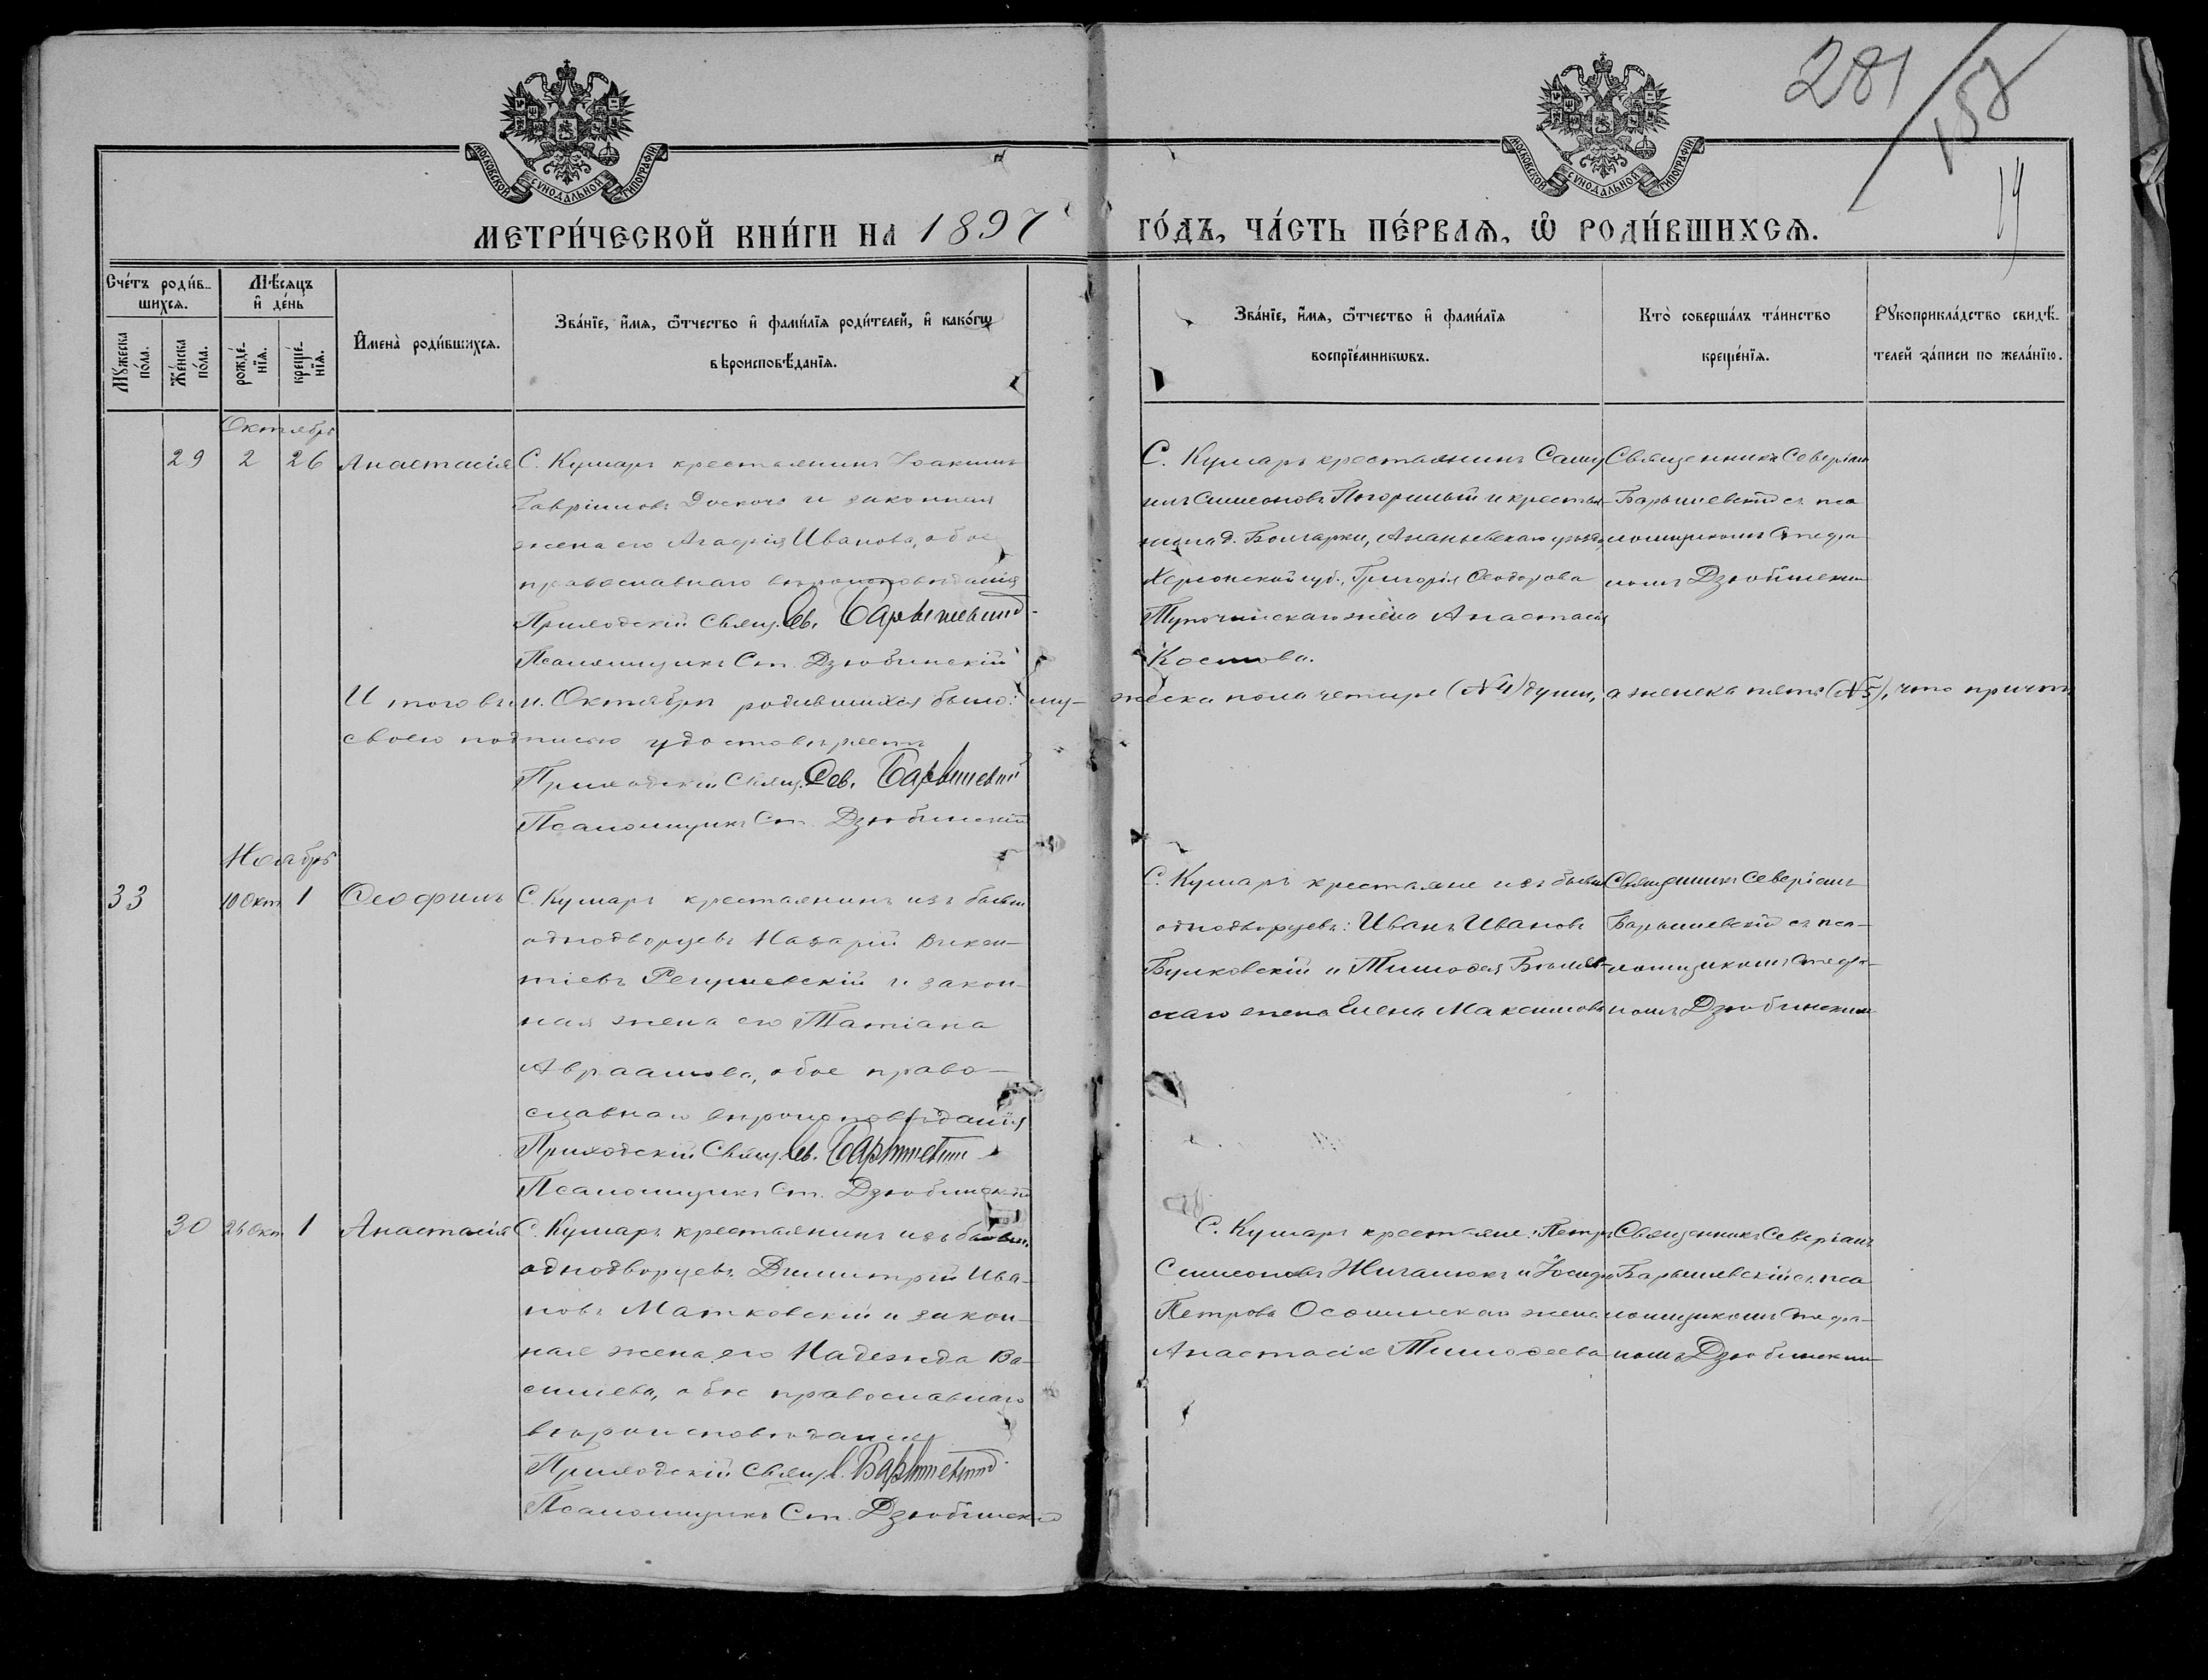 281/158
19
МОСКОВСКОЙ СѴНОДАЛЬНОЙ ТИПОГРАФІИ
МОСКОВСКОЙ СѴНОДАЛЬНОЙ ТИПОГРАФІИ
МЕТРИ́ЧЕСКОЙ КНИ́ГИ НА 1897 ГО́ДЪ, ЧА́СТЬ ПЕ́РВАѦ, Ѡ҆ РОДИ́ВШИХСѦ.
Сче́тъ роди́в-
шихсѧ.
Мѣ́сѧцъ
и҆ де́нь
Мꙋ́жеска
по́ла.
Же́нска
по́ла.
рожде́-
нїѧ.
креще́-
нїѧ.
И҆мена̀ роди́вшихсѧ.
Зва́нїе, и҆́мѧ, ѻ҆́тчество и҆ фами́лїѧ роди́телей, и҆ како́гѡ
вѣроисповѣ́данїѧ.
Зва́нїе, и҆́мѧ, ѻ҆́тчество и҆ фами́лїѧ
воспрїе́мникѡвъ.
Кто̀ соверша́лъ та́инство
креще́нїѧ.
Рꙋкоприкла́дство свидѣ́-
телей за́писи по жела́нїю.
Октябрь
29 2 26 Анастасія
С. Кумаръ крестьянинъ Іоакимъ
Гавріиловъ Доскочъ и законная
жена его Агафія Иванова, обое
православнаго вѣроисповѣданія
Приходскій Свящ. Сев. Барышевскій
Псаломщикъ Ст. Дзюбинскій
С. Кумаръ крестьянинъ Саму
илъ Симеоновъ Погорилый и крестья-
нина д. Болгарки, Ананьевскаго уѣзда,
Херсонской губ., Григорія Ѳеодорова
жена Анастасія
Костова.
Священникъ Северіанъ
Барышевскій съ пса
ломщикомъ Стефа
номъ Дзюбинскимъ
Итого въ м. Октябрѣ родившихся было: му-жеска пола четыре (№ 4) души, а женска пять (№ 5), что причтъ
своею подписью удостовѣряетъ
Приходскій Свящ. Сев. Барышевскій
Псаломщикъ Ст. Дзюбинскій
Ноябрь
33 10 Окт. 1 Ѳеофилъ
С. Кумаръ крестьянинъ изъ бывш.
однодворцевъ Назарій Викен-
тіевъ и закон-
ная жена его Татіана
Авраамова, обое право-
славнаго вѣроисповѣданія
Приходскій Свящ. Сев. Барышевскій
Псаломщикъ Ст. Дзюбинскій
С. Кумаръ крестьяне изъ бывш.
однодворцевъ: Иванъ Ивановъ
Булковскій и Тимоѳея
скаго жена Елена Максимова
Священникъ Северіанъ
Барышевскій съ пса-
ломщикомъ Стефа-
номъ Дзюбинскимъ
30 26 Окт. 1 Анастасія
С. Кумаръ крестьянинъ изъ бывш.
однодворцевъ Димитрій Ива-
новъ Матковскій и закон-
ная жена его Надежда Ва-
силева, обое православнаго
вѣроисповѣданія
Приходскій Свящ. С. Барышевскій
Псаломщикъ Ст. Дзюбинскій
С. Кумаръ крестьяне: Петръ
Симеоновъ Жиганюкъ и Іосифа
Петрова жена
Анастасія Тимоѳеева
Священникъ Северіанъ
Барышевскій съ пса
ломщикомъ Стефа-
номъ Дзюбинскимъ